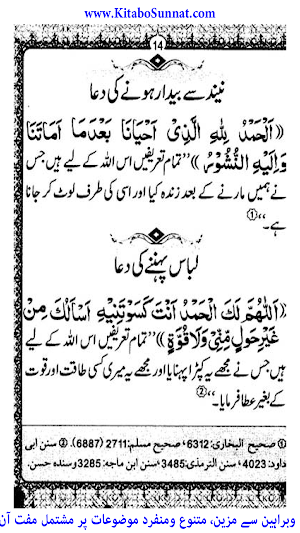 www.KitaboSunnat.com
14
نیند سے بیدار ہونے کی دعا
﴿اَلْحَمْدُ لِلّٰهِ الَّذِیْ اَحْیَانَا بَعْدَمَا اَمَاتَنَا
وَاِلَیْهِ النُّشُوْرُ﴾ ’’تمام تعریفیں اس اللہ کے لیے ہیں جس
نے ہمیں مارنے کے بعد زندہ کیا اور اسی کی طرف لوٹ کر جانا
ہے۔‘‘①
لباس پہننے کی دعا
﴿اَللّٰهُمَّ لَكَ الْحَمْدُ اَنْتَ كَسَوْتَنِیْهِ اَسْاَلُكَ مِنْ
غَیْرِ حَوْلٍ مِّنِّیْ وَلَا قُوَّةٍ﴾ ’’تمام تعریفیں اس اللہ کے لیے
ہیں جس نے مجھے یہ کپڑا پہنایا اور مجھے یہ میری کسی طاقت اور قوت
کے بغیر عطا فرمایا۔‘‘②
① صحیح البخاری: 6312؛ صحیح مسلم: 2711 (6887) ② سنن ابی
داود: 4023؛ سنن الترمذی: 3485؛ سنن ابن ماجه: 3285 وسنده حسن.
وبراہین سے مزین، متنوع ومنفرد موضوعات پر مشتمل مفت آن